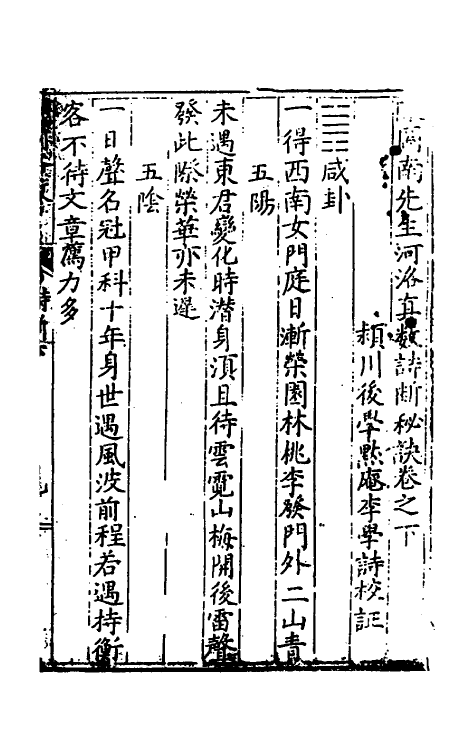 周南先生河洛真數詩断秘訣卷之下
頴川後學㸃處李學詩校証
䷞咸卦
一得西南女門庭日漸榮園林桃李發門外二山青
五陽
未遇東君變化時潛身湏且待雲霓山梅開後雷聲
發此際榮華亦未遲
五陰
一日聲名冠甲科十年身世遇風波前程若遇持衡
客不待文章薦力多